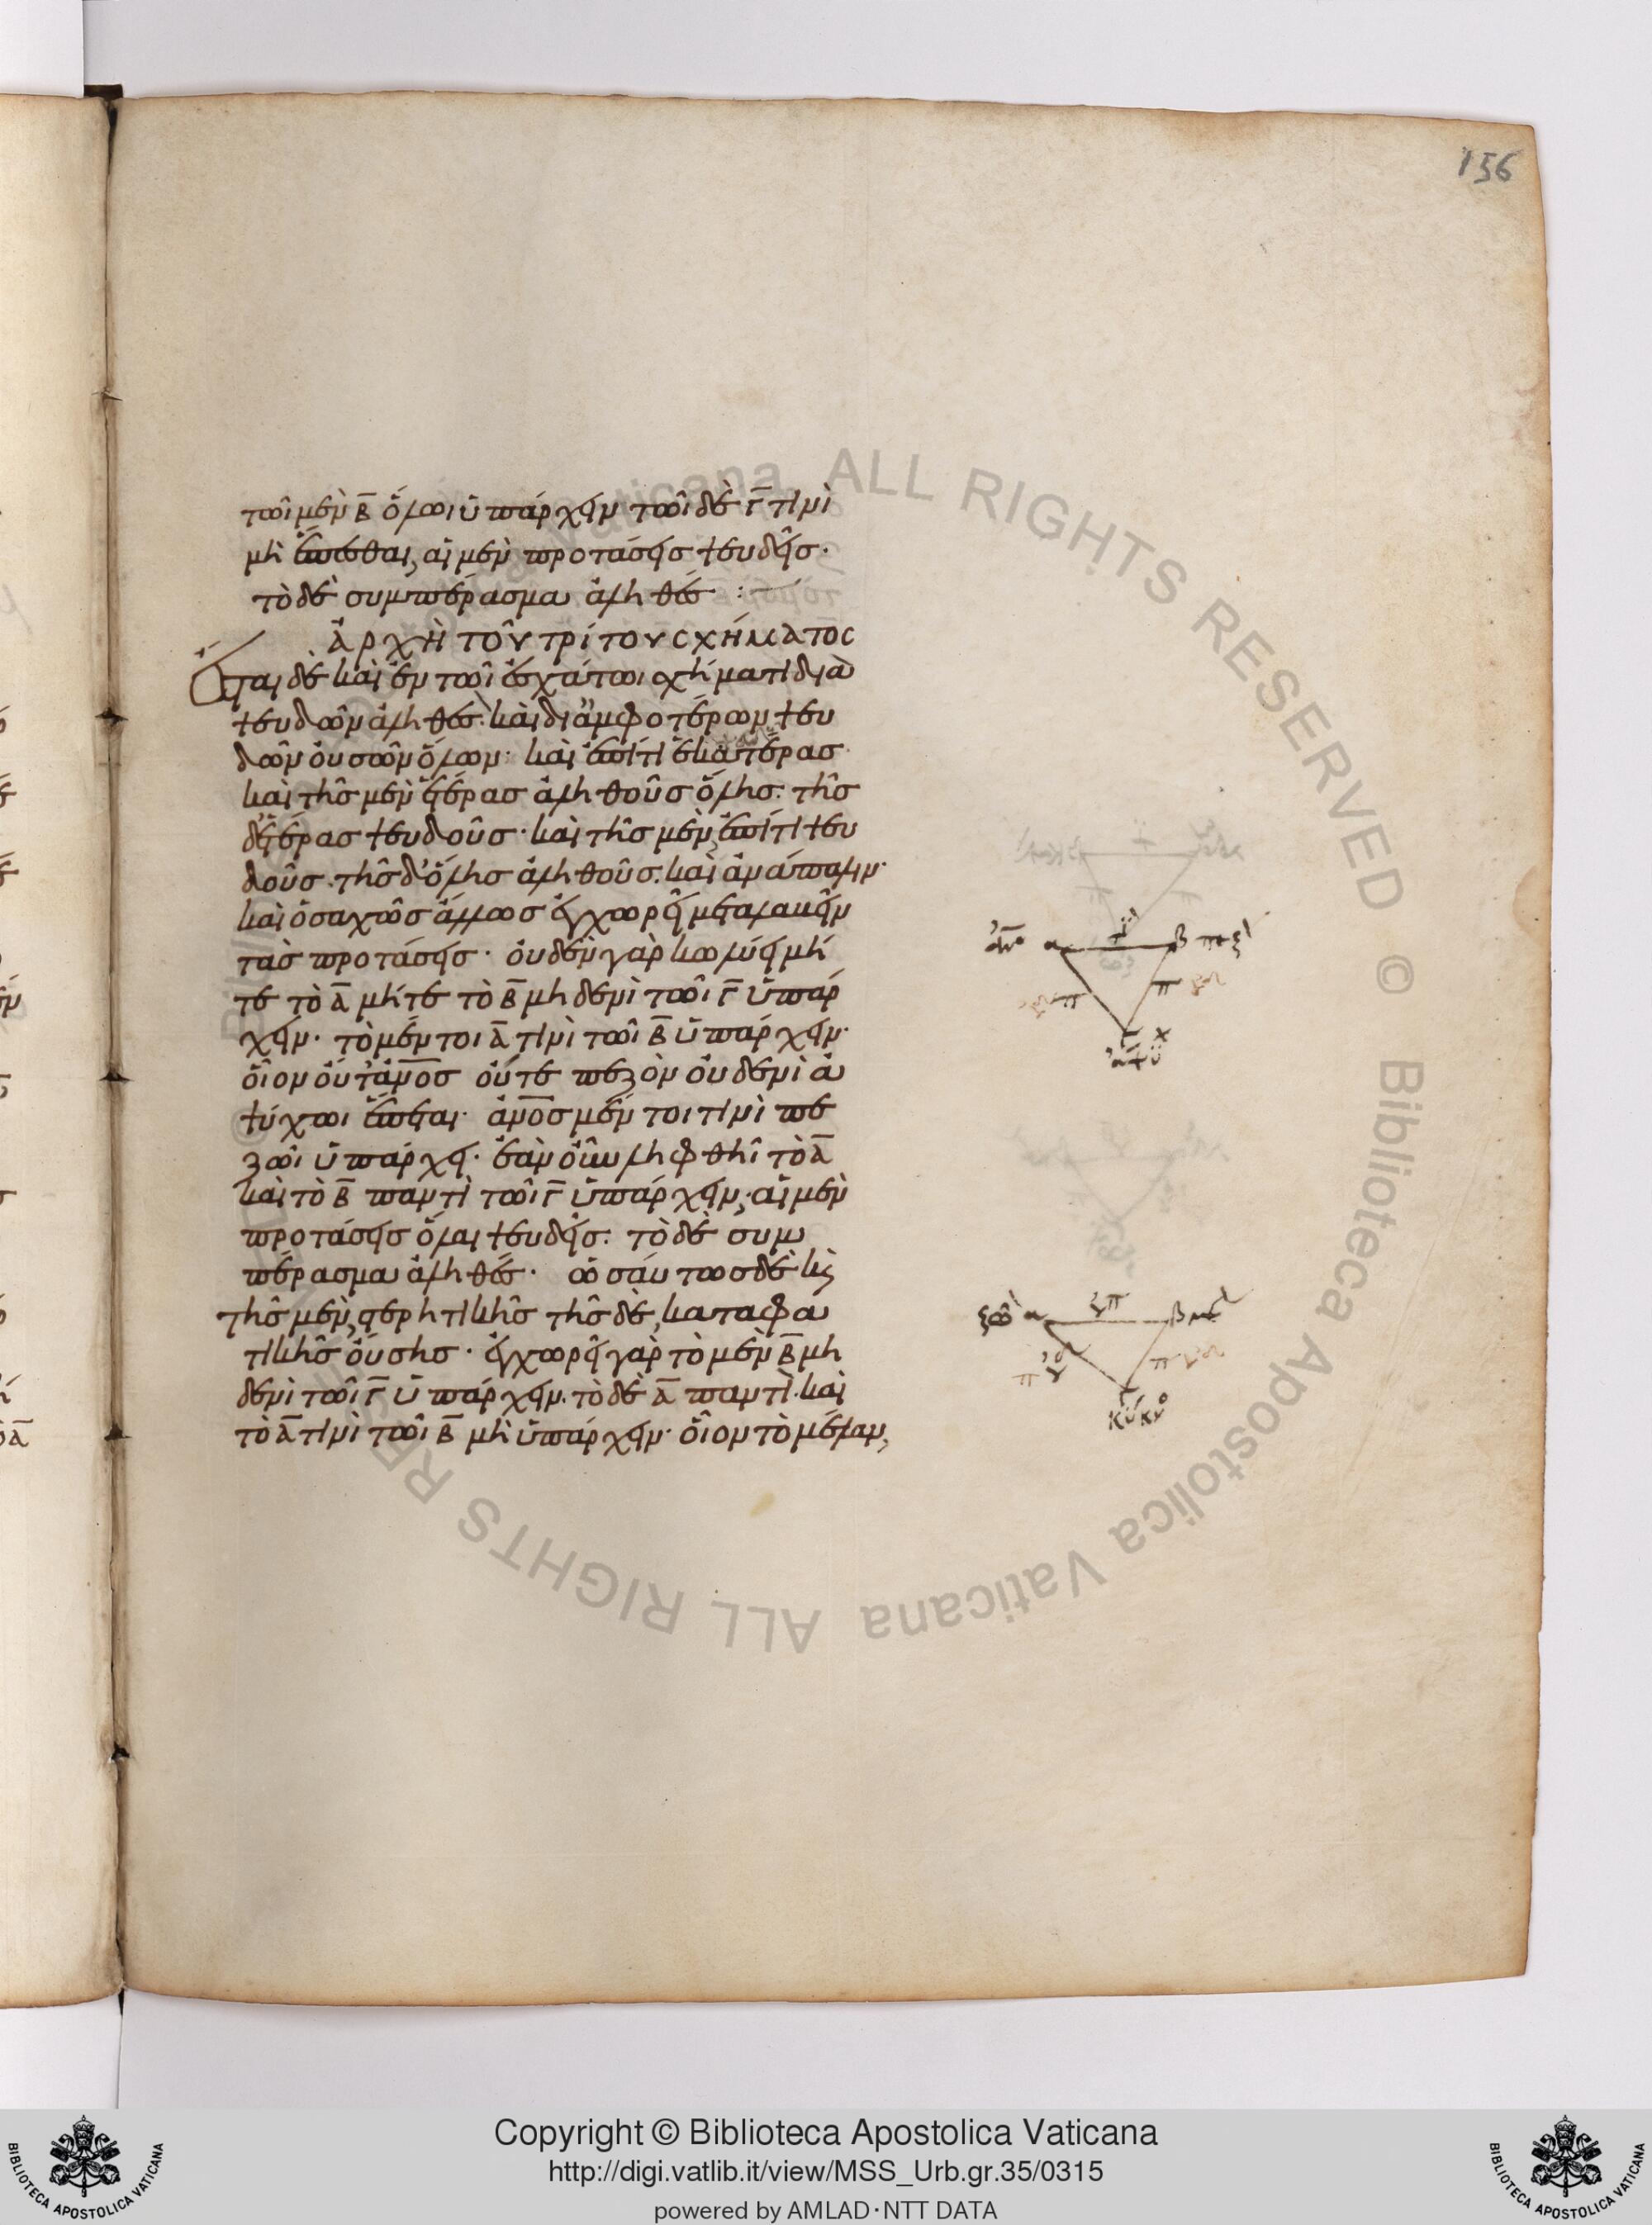 156
τῶι μὲν Β̅ ὅλωι ὑπάρχειν τῶι δὲ Γ̅ τινὶ
μὴ ἕπεσθαι, αἱ μὲν προτάσεις ψευδεῖς·
τὸ δὲ συμπέρασμα ἀληθές :
ἈΡΧῊ ΤΟΥ͂ ΤΡΊΤΟΥ ΣΧΉΜΑΤΟΣ
Ἔσται δὲ καὶ ἐν τῶι ἐσχάτωι σχήματι διὰ
ψευδῶν ἀληθές· καὶ δι ἀμφοτέρων ψευ
δῶν οὐσῶν ὅλων· καὶ ἐπί τι ἑκατέρας
καὶ τῆς μὲν ἑτέρας ἀληθοῦς ὅλης· τῆς
δ' ἑτέρας ψευδοῦς· καὶ τῆς μὲν ἐπί τι ψευ
δοῦς· τῆς δ' ὅλης ἀληθοῦς· καὶ ἀνάπαλιν·
καὶ ὁσαχῶς ἄλλως ἐγχωρεῖ μεταλαβεῖν
τὰς προτάσεις· οὐδὲν γὰρ κωλύει μή
τε τὸ Α̅ μήτε τὸ Β̅ μηδενὶ τῶι Γ̅ ὑπάρ
χειν· τὸ μέντοι Α̅ τινὶ τῶι Β̅ ὑπάρχειν·
οἷον οὔτ' ἄν̅ο̅ς οὔτε πεζὸν οὐδενὶ ἀ
ψύχωι ἕπεται· ἄν̅ο̅ς μέντοι τινὶ πε
ζῶι ὑπάρχει· ἐὰν οὖν ληφθῆι τὸ Α̅
καὶ τὸ Β̅ παντὶ τῶι Γ̅ ὑπάρχειν, αἱ μὲν
προτάσεις ὅλαι ψευδεῖς· τὸ δὲ συμ
πέρασμα ἀληθές· ὡσαύτως δὲ κὶ
τῆς μὲν στερητικῆς τῆς δὲ καταφα
τικῆς οὔσης· ἐγχωρεῖ γὰρ τὸ μὲν Β̅ μη
δενὶ τῶι Γ̅ ὑπάρχειν· τὸ δὲ Α̅ παντί· καὶ
τὸ Α̅ τινὶ τῶι Β̅ μὴ ὑπάρχειν· οἷον τὸ μέλαν,
α β
π π
α β
Copyright © Biblioteca Apostolica Vaticana
http://digi.vatlib.it/view/MSS_Urb.gr.35/0315
powered by AMLAD·NTT DATA
BIBLIOTECA APOSTOLICA VATICANA
BIBLIOTECA APOSTOLICA VATICANA
© Biblioteca Apostolica Vaticana ALL RIGHTS RESERVED